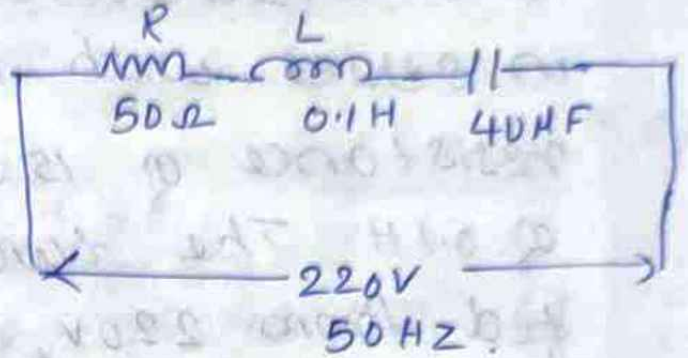 R L
50Ω 0.1H 40µF
220V
50HZ